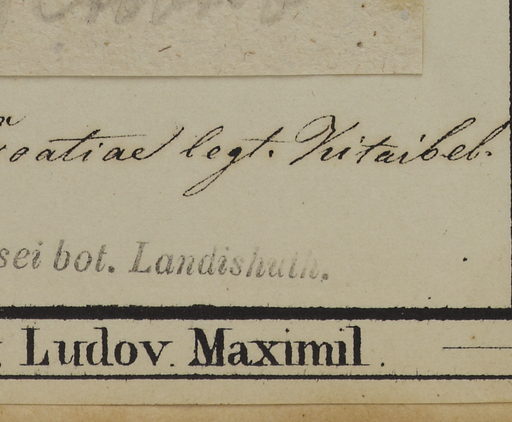 roatiae legt. Kitaibel.
sei bot. Landishuth.
Ludov. Maximil.